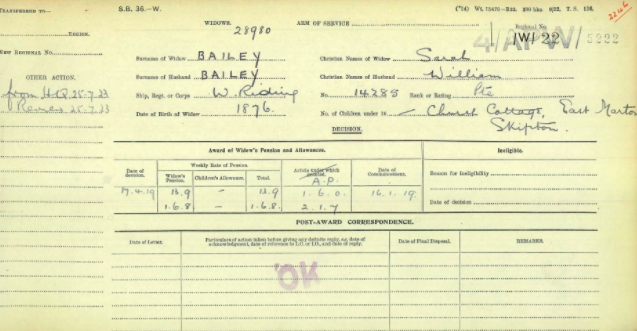 TRANSFERRED TO—
S.B. 36.—W.
WIDOWS.
28980
ARM OF SERVICE
2246
REGION.
Regional No.
4/APW/ 5222
1W1 22
New Regional No.
Surname of Widow. BAILEY
Christian Names of Widow Sarah
OTHER ACTION.
Surname of Husband BAILEY
Christian Names of Husband William
from H.Q. 25.7.23
Ship, Regt. or Corps W. Riding
No. 14288 Rank or Rating Pte
25.7.23
Date of Birth of Widow 1876.
No. of Children under 16 — Church Cottage, East Marton
Skipton.
DECISION.
Award of Widow's Pension and Allowances.
Ineligible.
Date of decision.
Weekly Rate of Pension.
Widow's Pension.
Children's Allowance.
Total.
Article under which
A.P.
Date of Commencement.
Reason for Ineligibility
17.4.19 13.9 — 13.9 1.6.0. 16.1.19.
1.6.8 — 1.6.8. 2.1.7
Date of decision
POST-AWARD CORRESPONDENCE.
Date of Letter.
Particulars of action taken before giving any definite reply, e.g. date of acknowledgment, date of reference to L.C. or I.O., and date of reply.
Date of Final Disposal.
REMARKS.
NO